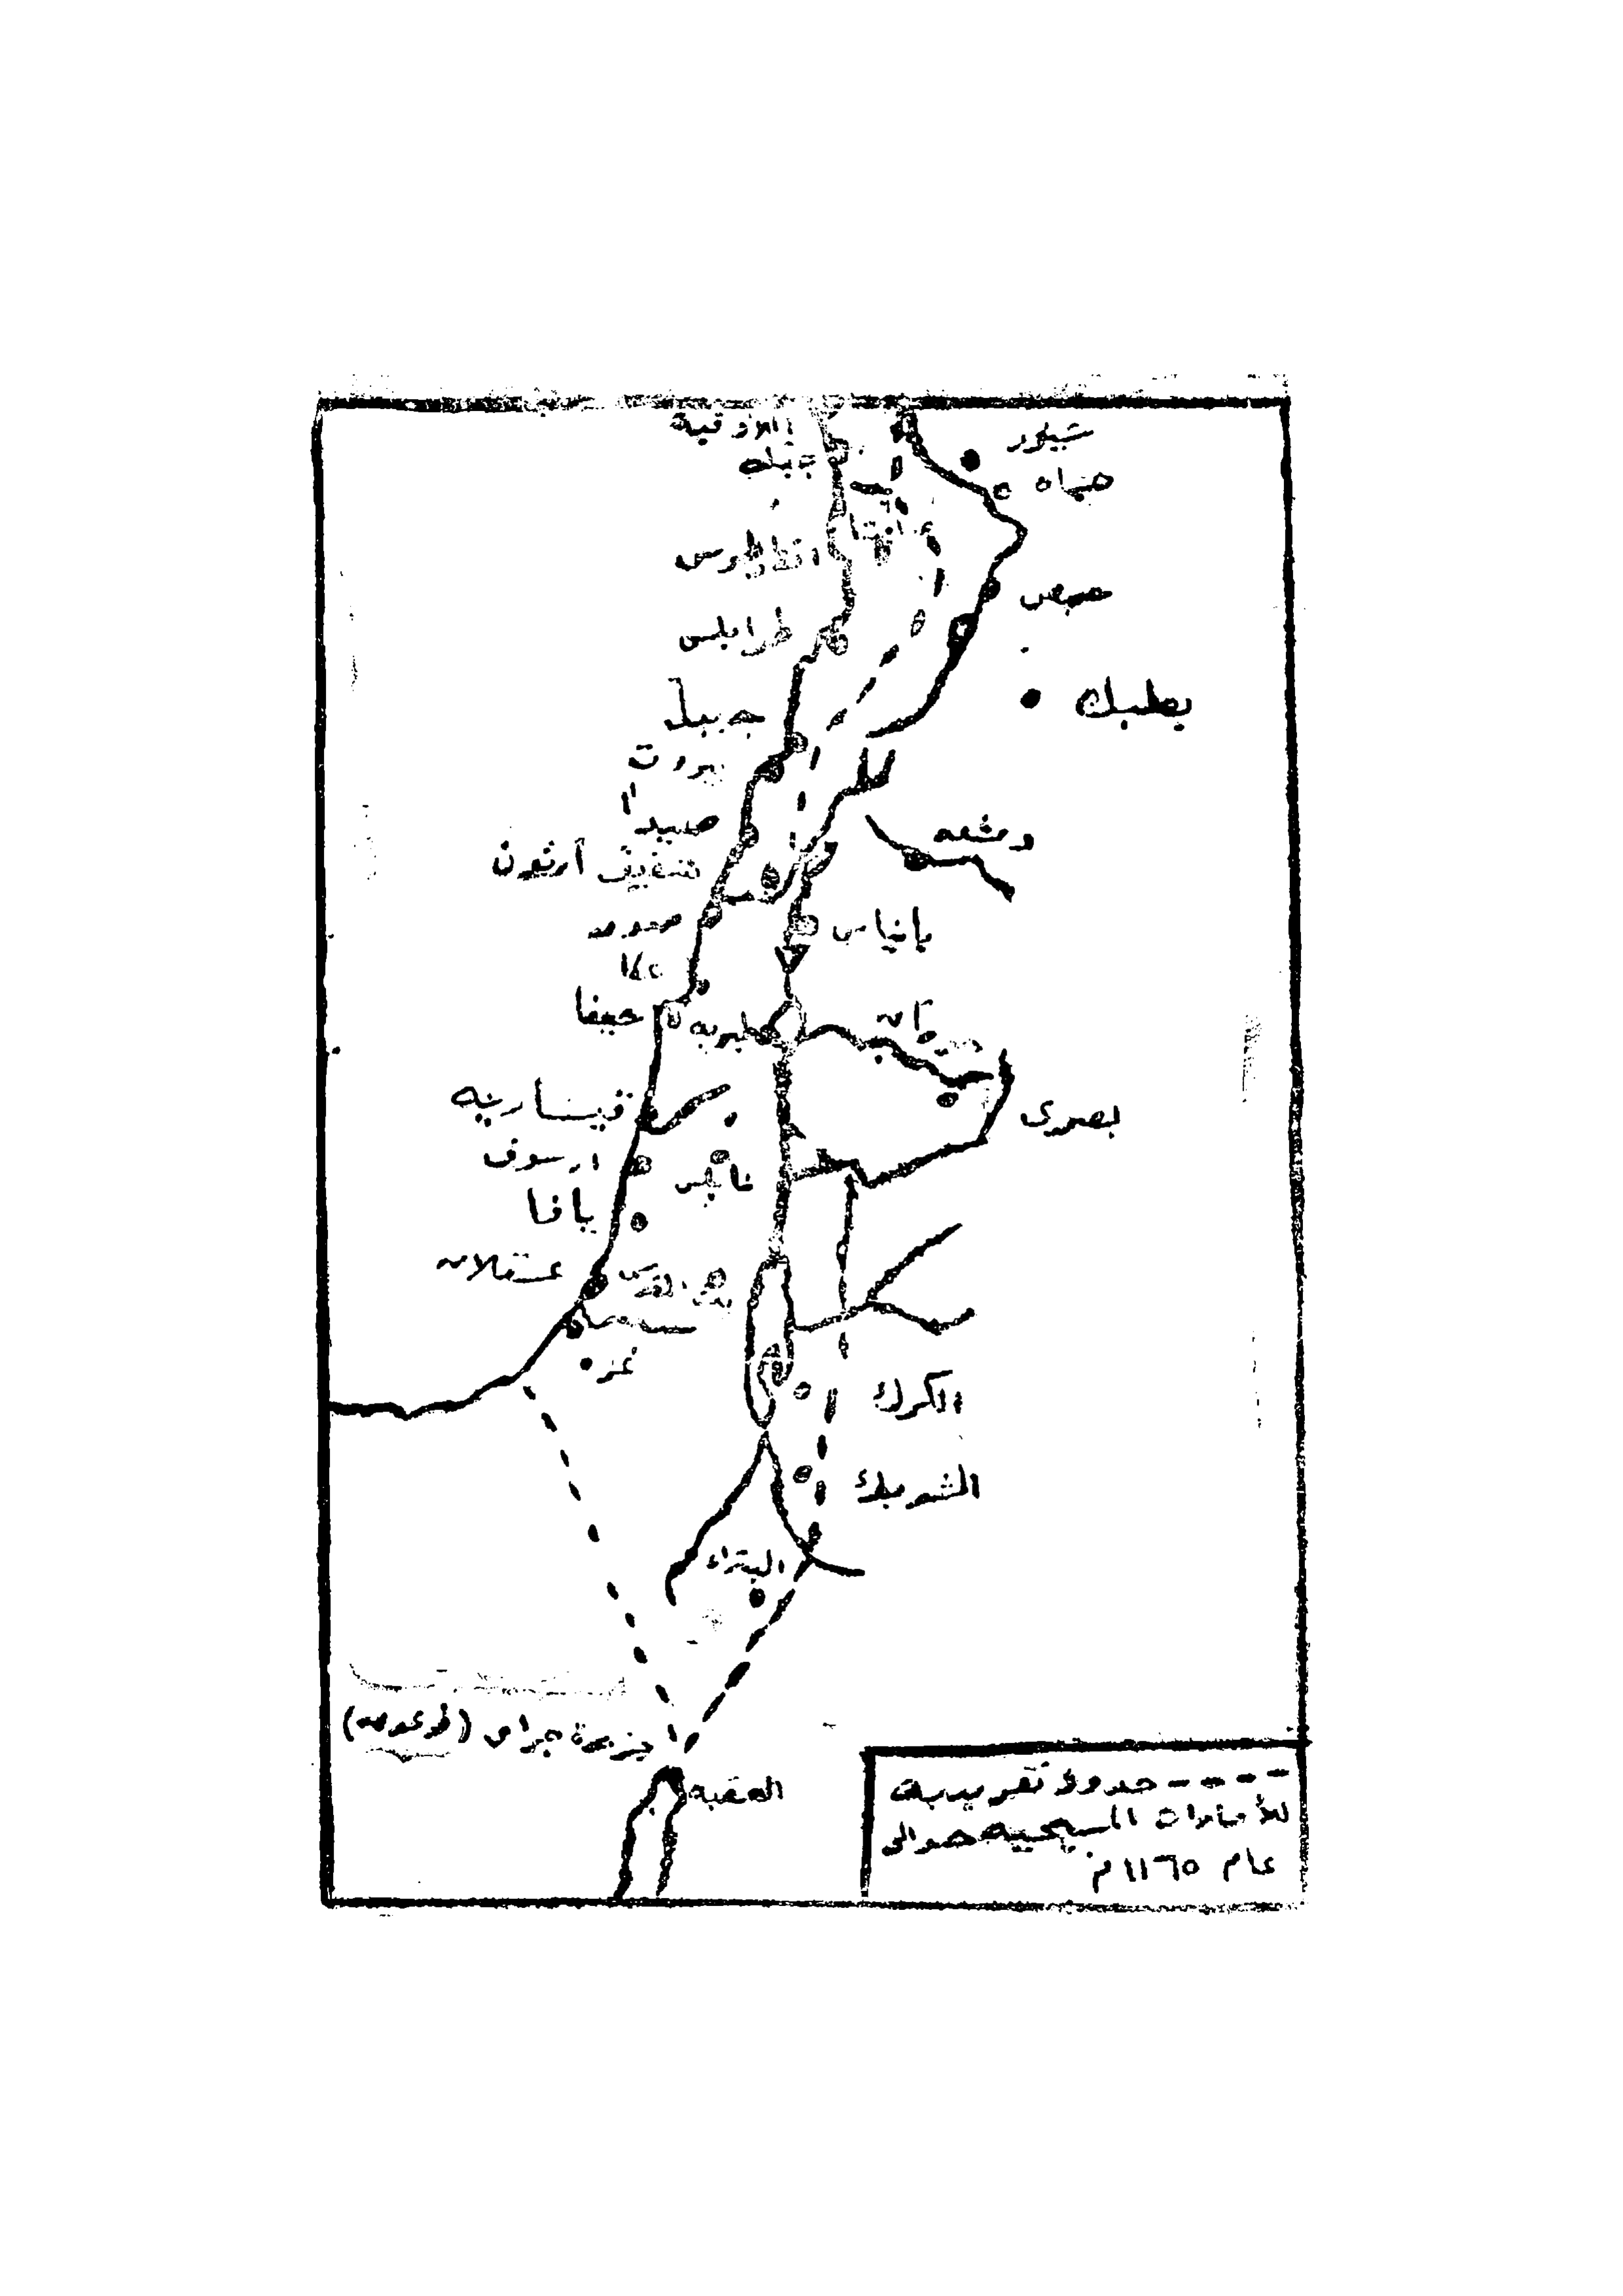 اللاذقية
شيزر
جبله
حماه
انطرطوس
حمص
طرابلس
بعلبك
جبيل
بيروت
صيدا
دمشق
شقيف أرنون
صور
بانياس
عكا
حيفا
طبريه
قيساريه
بصرى
ارسوف
نابلس
يافا
عسقلان
بيت المقدس
غزه
الكرك
الشوبك
البتراء
جزيرة جراى (فرعون)
العقبه
---- حدود تقريبية
للأمارات المسيحيه حوالى
عام ١١٦٥م